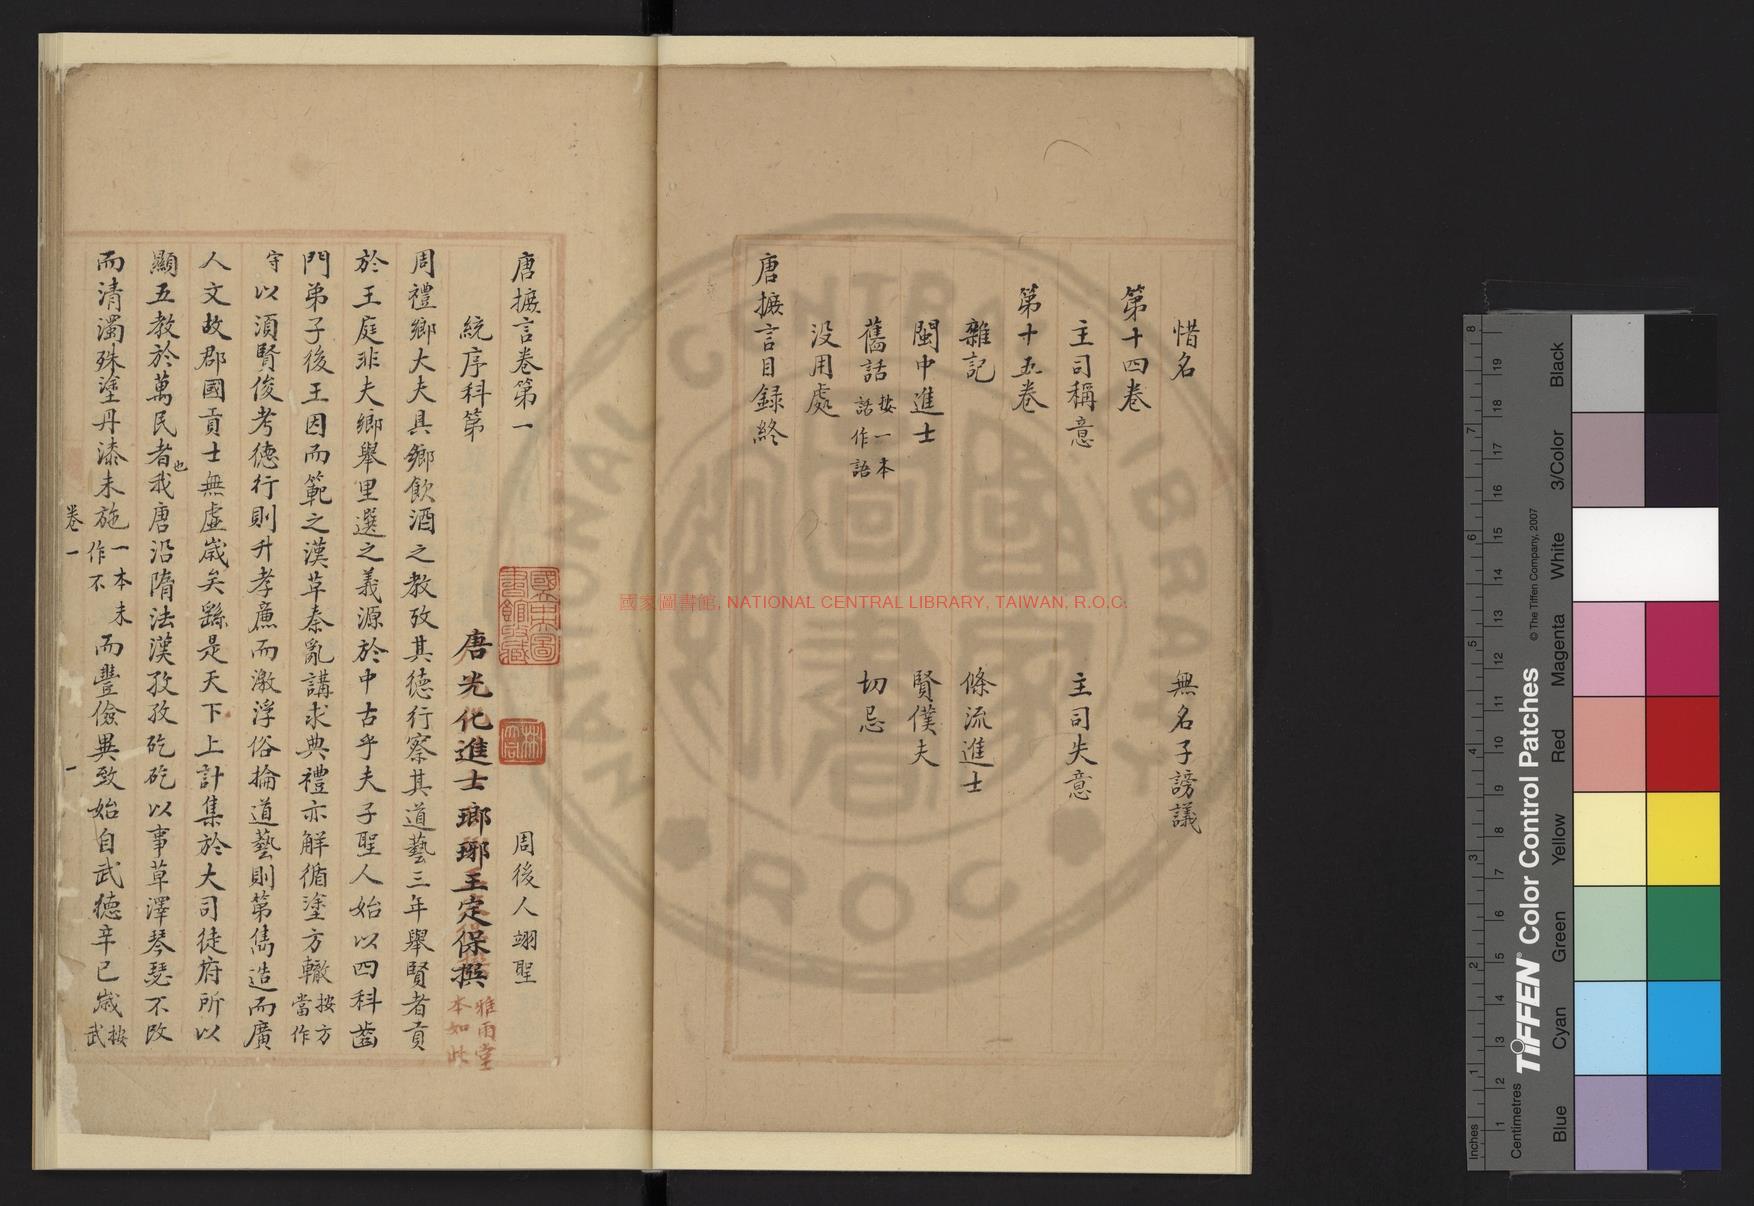 惜名　無名子謗議
第十四卷
主司稱意　主司失意
第十五卷
雜記　條流進士
閩中進士　賢僕夫
舊話按一本話作語　切忌
没用處
唐摭言目録終
唐摭言卷第一　周後人翊聖
統序科第　唐光化進士瑯琊王定保撰雅雨堂本如此
周禮鄉大夫具鄉飲酒之教攷其德行察其道藝三年舉賢者貢
於王庭非夫鄉舉里選之義源於中古乎夫子聖人始以四科齒
門弟子後王因而範之漢草秦亂講求典禮亦觧循塗方轍按方當作
守以須賢俊考德行則升孝廉而激浮俗掄道藝則第雋造而廣
人文故郡國貢士無虛歲矣繇是天下上計集於大司徒府所以
顯五教於萬民者也我唐沿隋法漢孜孜矻矻以事草澤琴瑟不改
而清濁殊塗丹漆未施一本未作不而豐儉異致始自武德辛巳歲按武
卷一　一
國立中央圖書館收藏
國家圖書館, NATIONAL CENTRAL LIBRARY, TAIWAN, R.O.C.
TIFFEN® Color Control Patches
© The Tiffen Company, 2007
Blue Cyan Green Yellow Red Magenta White 3/Color Black
Inches 1 2 3 4 5 6 7 8
Centimetres 1 2 3 4 5 6 7 8 9 10 11 12 13 14 15 16 17 18 19